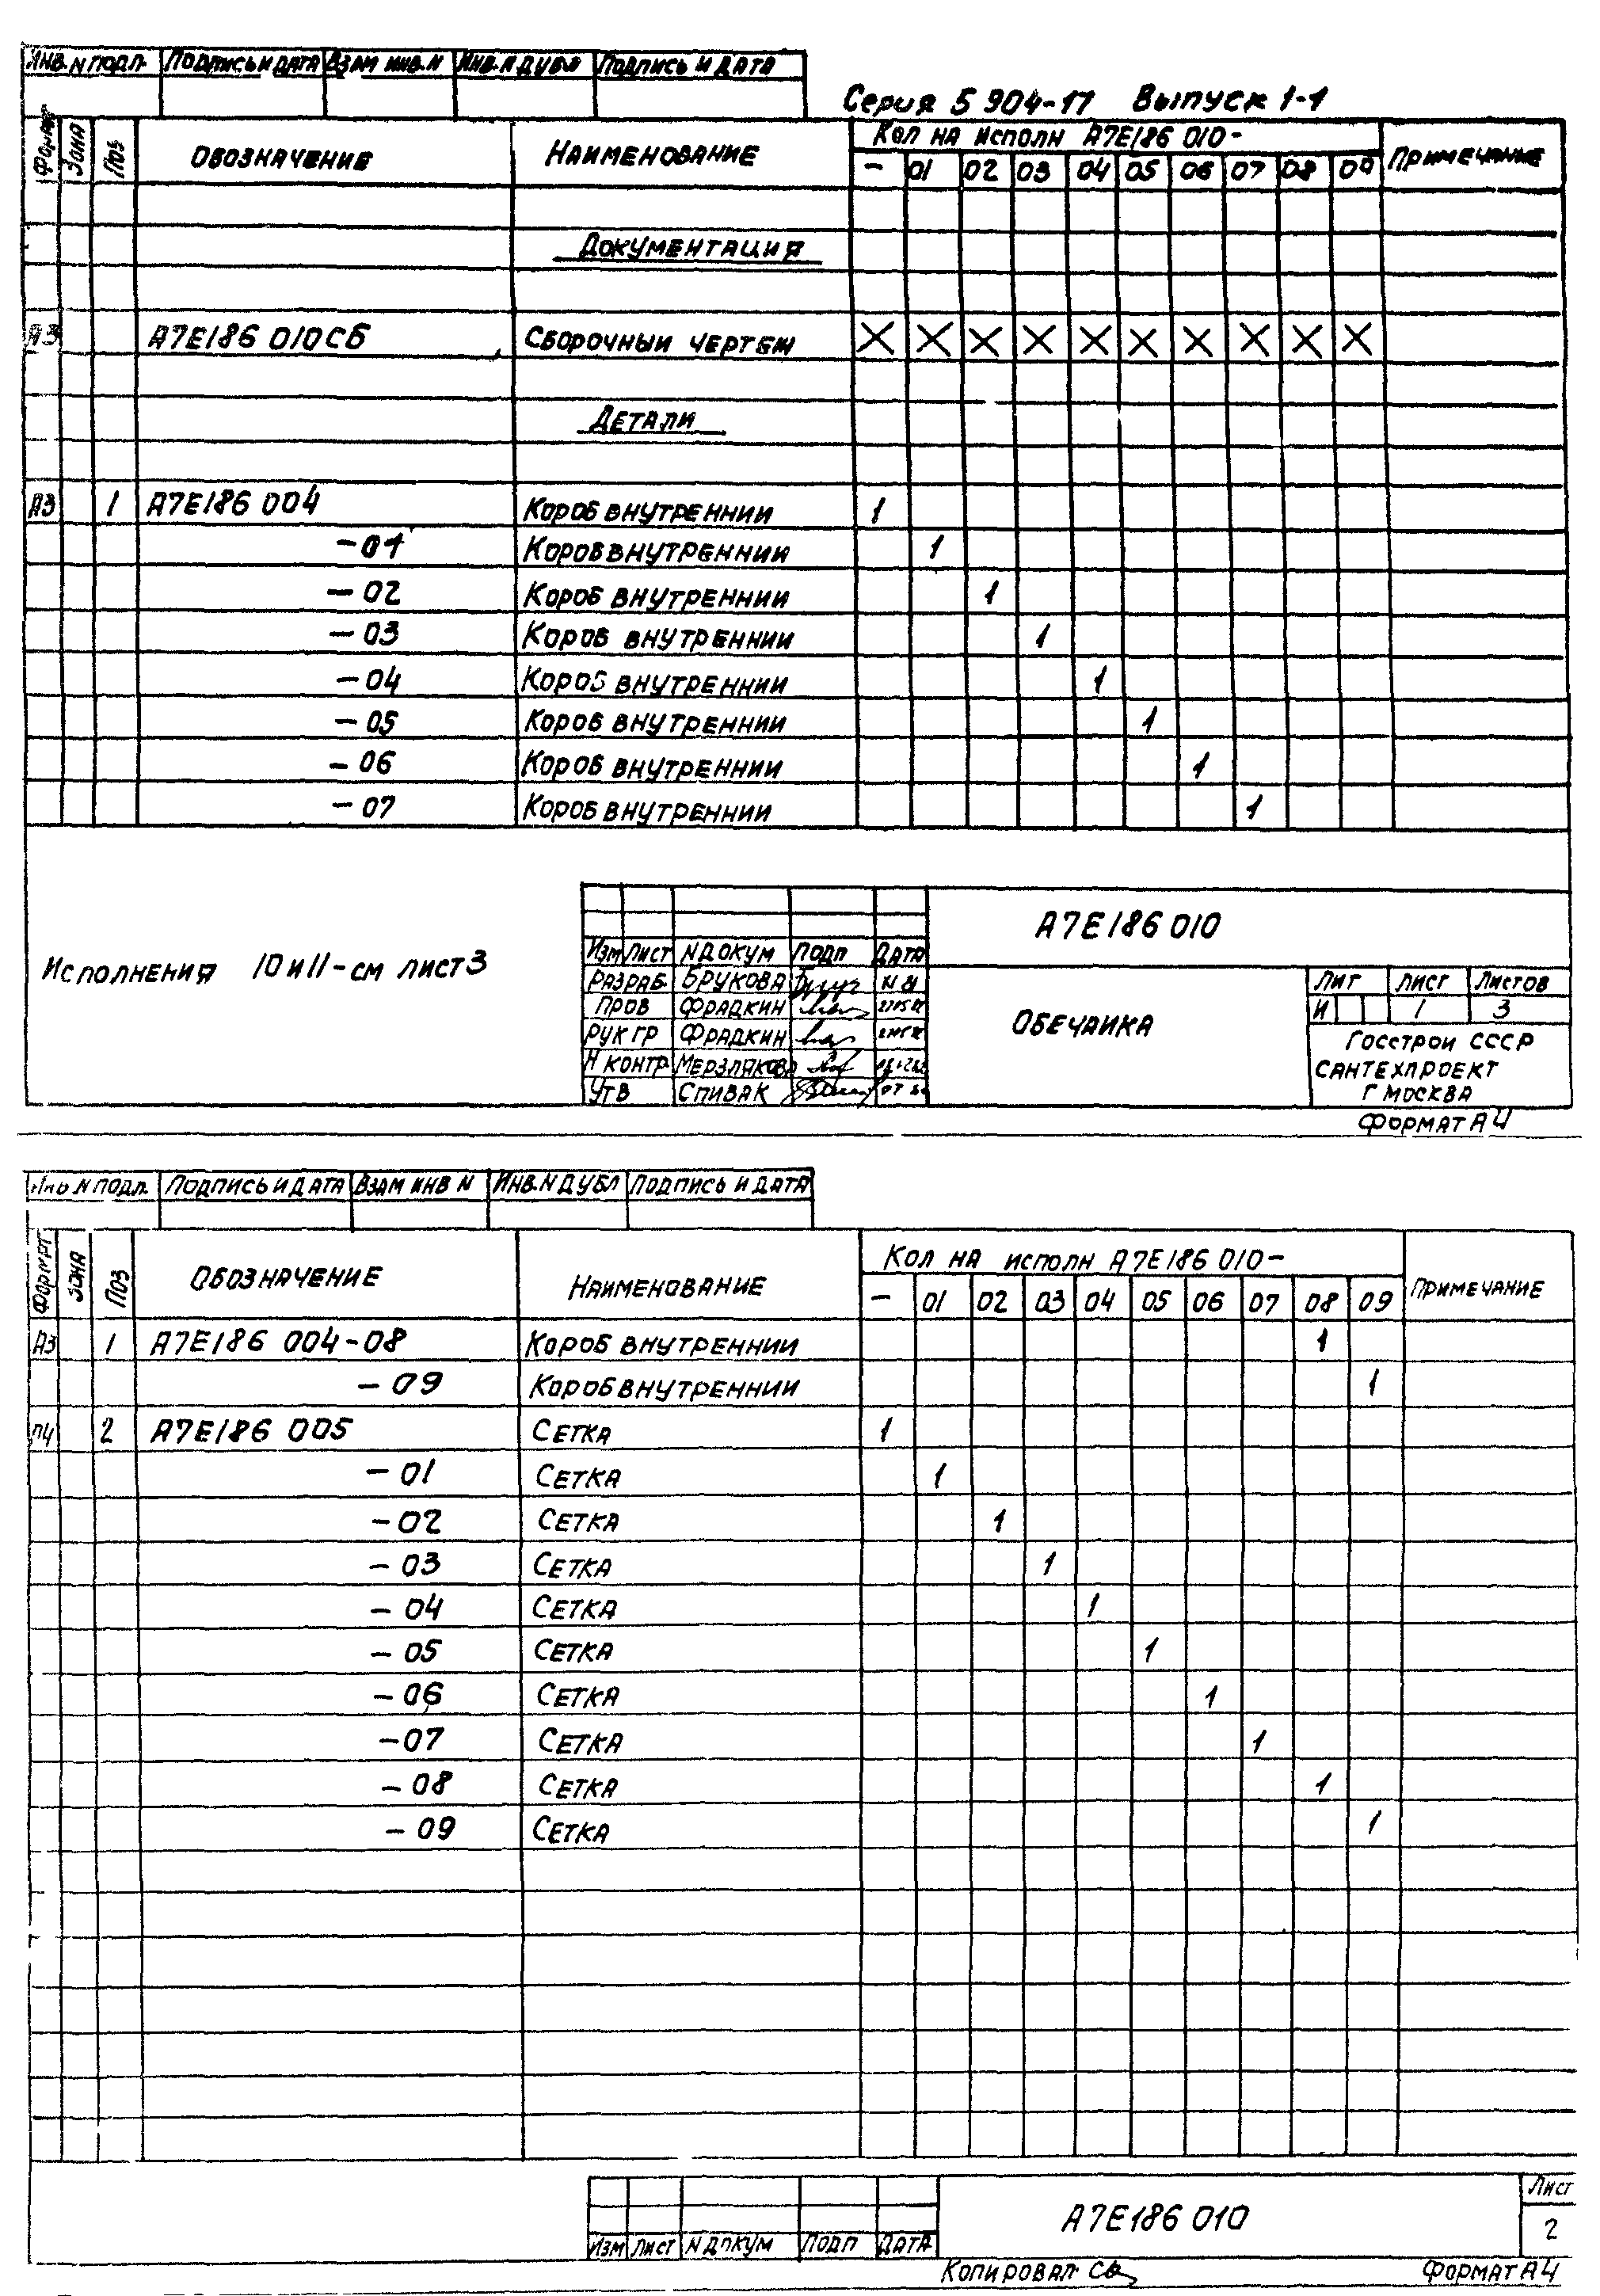 Инв.N подл. Подпись и дата Взам инв.N Инв.N дубл Подпись и дата
Серия 5 904-17 Выпуск 1-1
Формат Зона Поз Обозначение Наименование Кол на исполн А7Е186 010- Примечание
- 01 02 03 04 05 06 07 08 09
Документация
А3 А7Е186 010СБ Сборочный чертеж X X X X X X X X X X
Детали
А3 1 А7Е186 004 Короб внутреннии 1
-01 Короб внутреннии 1
-02 Короб внутреннии 1
-03 Короб внутреннии 1
-04 Короб внутреннии 1
-05 Короб внутреннии 1
-06 Короб внутреннии 1
-07 Короб внутреннии 1
Исполнения 10 и 11 - см лист 3
А7Е186 010
Изм Лист N докум Подп Дата
Разраб. Брукова
Пров Фрадкин
Рук гр Фрадкин
Н контр Мерзлякова
Утв Спивак
Обечаика
Лит Лист Листов
И 1 3
Госстрои СССР
Сантехпроект
г Москва
Формат А4
Инв N подл. Подпись и дата Взам инв N Инв.N дубл Подпись и дата
Формат Зона Поз Обозначение Наименование Кол на исполн А7Е186 010- Примечание
- 01 02 03 04 05 06 07 08 09
А3 1 А7Е186 004-08 Короб внутреннии 1
-09 Короб внутреннии 1
А4 2 А7Е186 005 Сетка 1
-01 Сетка 1
-02 Сетка 1
-03 Сетка 1
-04 Сетка 1
-05 Сетка 1
-06 Сетка 1
-07 Сетка 1
-08 Сетка 1
-09 Сетка 1
Изм Лист N докум Подп Дата
А7Е186 010
Лист
2
Копировал
Формат А4